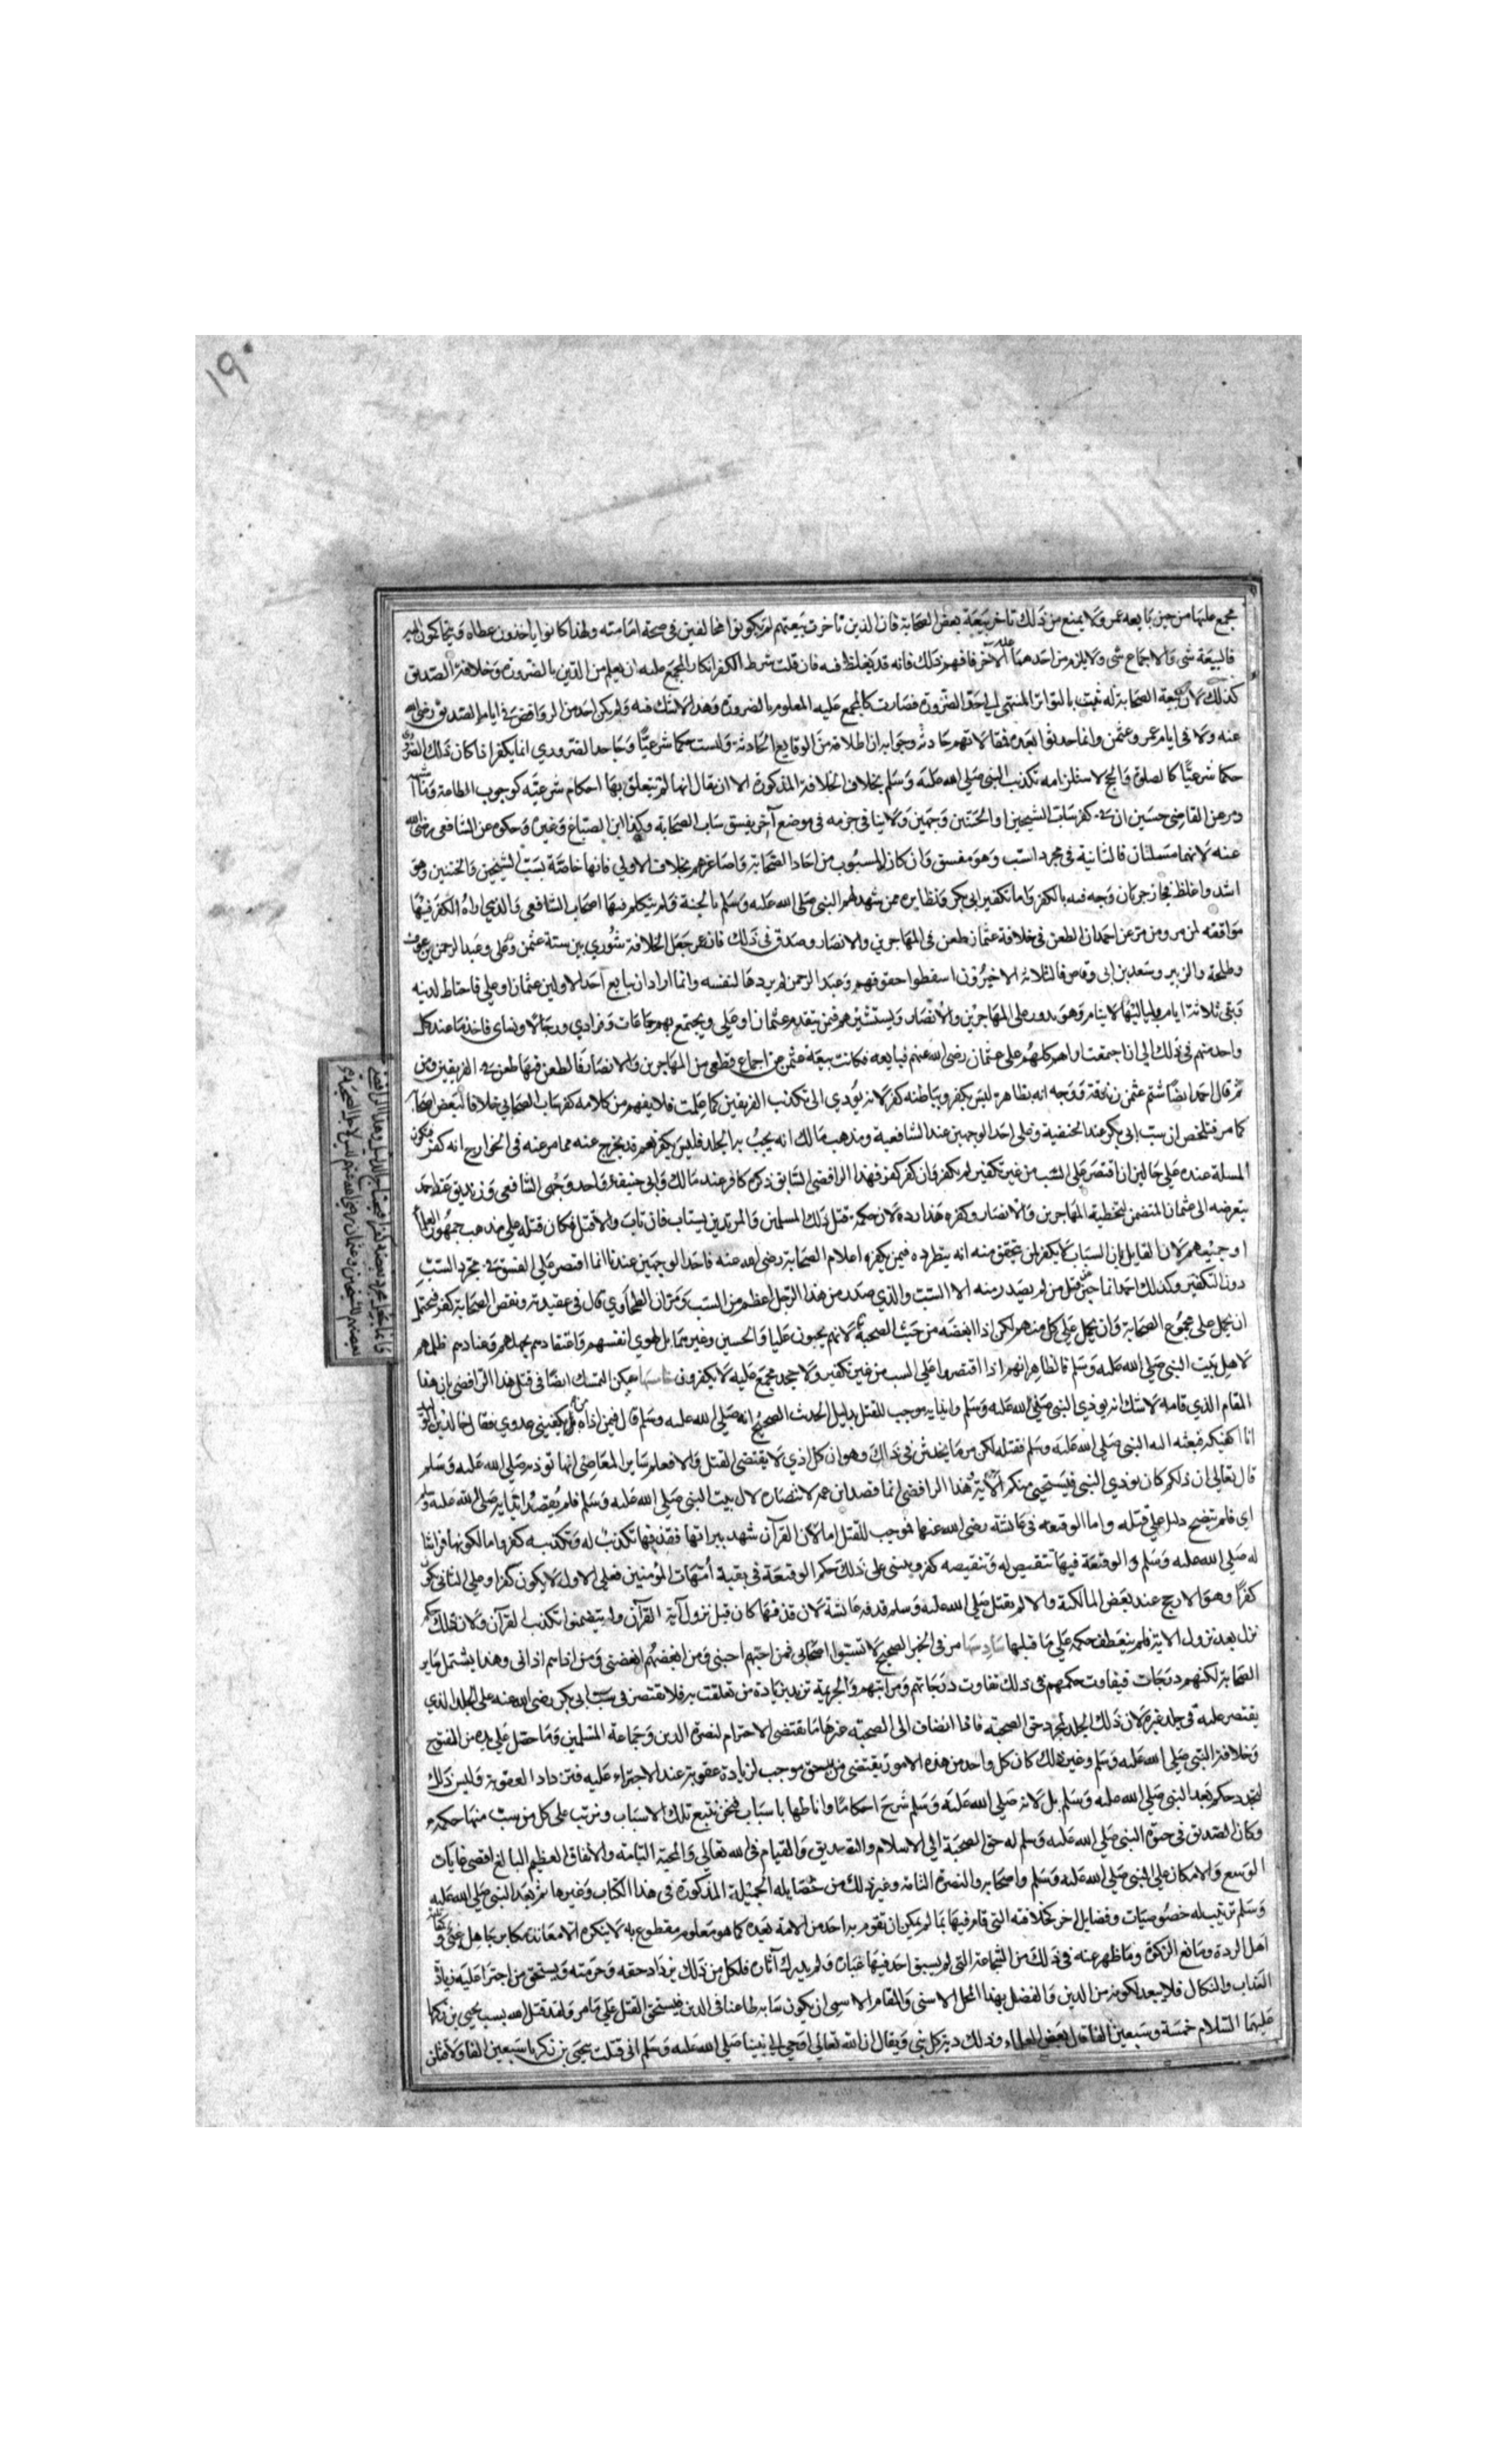 ١٩٠
مجمع عليها من حين بايعه عمر ولا يمنع من ذلك تاخر بيعة بعض الصحابة فان الذين تاخرت بيعتهم لم يكونوا مخالفين في صحة امامته ولهذا كانوا ياخذون عطاه ويتحاكمون اليه
فالبيعة شى والاجماع شى ولا يلزم من احدهما الاخر فافهم ذلك فانه قد يغلط فيه فان قلت شرط الكفر انكار المجمع عليه ان يعلم من الدين بالضرورة وخلافة الصديق
كذلك لان بيعة الصحابة له ثبتت بالتواتر المنتهي الى حد الضرورة فصارت كالمجمع عليه المعلوم بالضرورة وهذا لا شك فيه ولم يكن احد من الروافض في ايام الصديق رضى الله
عنه ولا في ايام عمر وعثمن وانما حدثوا بعده فمقالاتهم حادثة وجوابه ان الخلافة من الوقايع الحادثة وليست حكما شرعيًّا وجاحد الضروري انما يكفر اذا كان ذلك الضروري
حكما شرعيًّا كالصلوة والحج لاستلزامه تكذيب النبى صلى الله عليه وسلم بخلاف الخلافة المذكورة الا ان يقال انها لم يتعلق بها احكام شرعيّه كوجوب الطاعة وما اشبه
ومر عن القاضى حسين ان في كفر ساب الشيخين او الختنين وجهين ولا ينافي جزمه في موضع آخر بفسق ساب الصحابة وكذا ابن الصباغ وغيره وحكوه عن الشافعى رضى الله
عنه لانهما مسئلتان فالثانية في مجرد السّب وهو مفسق وان كان المسبوب من احاد الصحابة واصاغرهم بخلاف الاولى فانها خاصّة بسبّ الشيخين والختنين وهو
اشد واغلظ فجاز جريان وجه فيه بالكفر واما تكفير ابى بكر ونظايره ممن شهد لهم النبى صلى الله عليه وسلم بالجنة فلم يتكلم فيها اصحاب الشافعى والذي اراه الكفر فيها
موافقة لمن مر ومن مرّ عن احمد ان الطعن في خلافة عثمان طعن في المهاجرين والانصار وصدق في ذلك فان عمر جعل الخلافة شُورى بين ستة عثمن وعلى وعبد الرحمن بن عوف
وطلحة والزبير وسعد بن ابى وقاص فالثلاثة الاخيرون اسقطوا حقوقهم وعبد الرحمن لم يردها لنفسه وانما اراد ان يبايع احد الاولين عثمان او على فاحتاط لدينه
وبقى ثلاثة ايام بلياليها لا ينام وهو يدور على المهاجرين والانصار ويستشيرهم فيمن يتقدم عثمان او على ويجتمع بهم جماعات وفرادي ورجالا ونساى فاخذ ما عند كل
واحد منهم في ذلك الى ان اجتمعت اراهم كلهم على عثمان رضى الله عنهم فبايعه فكانت بيعة عثمن عن اجماع قطعى من المهاجرين والانصار فالطعن فيها طعن في الفريقين ومن
ثم قال احمد ايضًا شتم عثمن زندقة ووجه انه بظاهره ليس بكفر وبباطنه كفر لانه يؤدي الى تكذيب الفريقين كما علمت فلا يفهم من كلامه كفر ساب الصحابي خلافا لبعض اصحابه
كما مر فتلخص ان سب ابى بكر عند الحنفية وعلى احد الوجهين عند الشافعية ومذهب مالك انه يجبُ به الجلد فليس بكفر نعم قد يخرج عنه مما مر عنه في الخوارج انه كفر فتكون
المسلة عنده على حالين ان اقتصر على السّب من غير تكفير لم يكفر وان كفر كفر فهذا الرافضى السّابق ذكره كافر عند مالك وابى حنيفة واحد وجهى الشافعى وزنديق عند احمد
بتعرضه الى عثمان المتضمن لتخطية المهاجرين والانصار وكفره هذا رده لان حكمه قبل ذلك المسلمين والمرتد يستتاب فان تاب والا قتل فكان قتله على مذهب جمهور العلماء
او جميعهم لان القايل بان السبّاب لا يكفر لم يتحقق منه انه يطرده فيمن يكفر اعلام الصحابة رضى الله عنه فاحد الوجهين عندنا انما اقتصر على الفسق في مجرد السّبّ
دون التكفير وكذلك احمد انما جبن عن قتل من لم يصدر منه الا السّبّ والذي صدر من هذا الرّجل اعظم من السّب ومرّ ان الطحاوي قال في عقيدته وبغض الصحابة كفر فيحتمل
ان يحمل على مجموع الصحابة وان يحمل على كل منهم لكن اذا ابغضه من حيث الصحبة لانهم يحبون عليا والحسين وغيرهما بل لهوي انفسهم واعتقادهم بجهلهم وعنادهم ظلمهم
لاهل بيت النبى صلى الله عليه وسلم فالظاهر انهم اذا اقتصروا على السب من غير تكفير ولا جحد مجمع عليه لا يكفرون خامسها يمكن التمسك ايضًا في قتل هذا الرافضى بان هذا
المقام الذي قامه لا شك انه يوذي النبى صلى الله عليه وسلم وايذايه موجب للقتل بدليل الحدث الصحيح انه صلى الله عليه وسلم قال فيمن اذاه من يكفينى عدوي فقال خالد بن الوليد
انا اكفيكه فبعثه اليه النبى صلى الله عليه وسلم فقتله لكن مر ما يخدش في ذلك وهو ان كل اذي لا يقتضى القتل والا فعلم ساير المعاصى انها توذيه صلى الله عليه وسلم
قال تعالى ان ذلكم كان يوذي النبى فيستحيى منكم الاية وهذا الرافضى انما قصد ابن عمر لانتصاره لال بيت النبى صلى الله عليه وسلم فلم يقصد ايذايه صلى الله عليه وسلم
اي فلم يتضح دليل على قتله واما الوقيعة في عائشة رضى الله عنها فموجب للقتل اما لان القرآن شهد ببراتها فقذفها تكذيب له وتكذيبه كفر واما لكونها فراشا
له صلى الله عليه وسلم والوقيعة فيها تنقيص له وتنقيصه كفر وينبنى على ذلك حكم الوقيعة في بقية أمهات المؤمنين فعلى الاول لا يكون كفرا وعلى الثانى يكون
كفرًا وهو الارجح عند بعض المالكية والا لم يقتل صلى الله عليه وسلم قذفة عائشة لان قذفها كان قبل نزول آية القرآن ولم يتضمنوا تكذيب القرآن ولان ذلك حكم
نزل بعد نزول الاية فلم ينعطف حكمه على ما قبلها سادسها مر في الخبر الصحيح لا تسبّوا اصحابى فمن احبّهم احبنى ومن ابغضهُم ابغضنى ومن اذاهم اذانى وهذا يشتمل ساير
الصحابة لكنهم درجات فيفاوت حكمهم في ذلك تفاوت درجاتهم ومراتبهم والجريمة تزيد بزيادة من تعلقت به فلا يقتصر في سب ابى بكر رضى الله عنه على الجلد الذي
يقتصر عليه في جلد غيره لان ذلك الجلد لمجرد حق الصحبة فاذا انضاف الى الصحبة غيرها مما يقتضى الاحترام لنصرة الدين وجماعة المسلمين وما حصل على يده من الفتوح
وخلافة النبى صلى الله عليه وسلم وغير ذلك كان كل واحد من هذه الامور يقتضى مزيد حق موجب لزيادة عقوبة عند الاجتراء عليه فتزداد العقوبة وليس ذلك
لتجدد حكم بعد النبى صلى الله عليه وسلم بل لانه صلى الله عليه وسلم شرح احكامًا واناطها باسباب فنحن نتبع تلك الاسباب ونرتب على كل من سبب منها حكمه
وكان الصّديق في حيوة النبى صلى الله عليه وسلم له حق الصحبة الى الاسلام والتصديق والقيام في الله تعالى والمحبّة التامة والانفاق العظيم البالغ اقصى غايات
الوسع والامكان على النبى صلى الله عليه وسلم واصحابه والنصرة التامة وغير ذلك من خصايله الجميلة المذكورة في هذا الكتاب وغيرها ثم بعد النبى صلى الله عليه
وسلم ترتيب له خصوصيات وفضايل اخر بخلافته التى قام فيها بما لم يمكن ان يقوم به احد من الامة بعده كما هو معلوم مقطوع به لا ينكره الا معاند مكابر جاهل غبى وقتال
اهل الردة ومانعى الزكوة وما ظهر عنه في ذلك من الشجاعة التى لم يسبق احد فيها غباره ولم يدرك آثاره فلكل من ذلك يزداد حقه وحرمته ويستحق من اجترا عليه زيادة
العذاب والنكال فلا يبعد لكونه من الدين والفضل بهذا المحل الاسنى والمقام الاسمى ان يكون سابه طاعنا في الدين فيستحق القتل على ما مر ولقد قتل الله بسبب يحيى بن زكريا
عليهما السّلام خمسة وسبعين الفا قال بعض العلماء وذلك دية كل نبى ويقال ان الله تعالى اوحى الى نبينا صلى الله عليه وسلم انى قتلت بيحيى بن زكريا سبعين الفا ولاقتلن